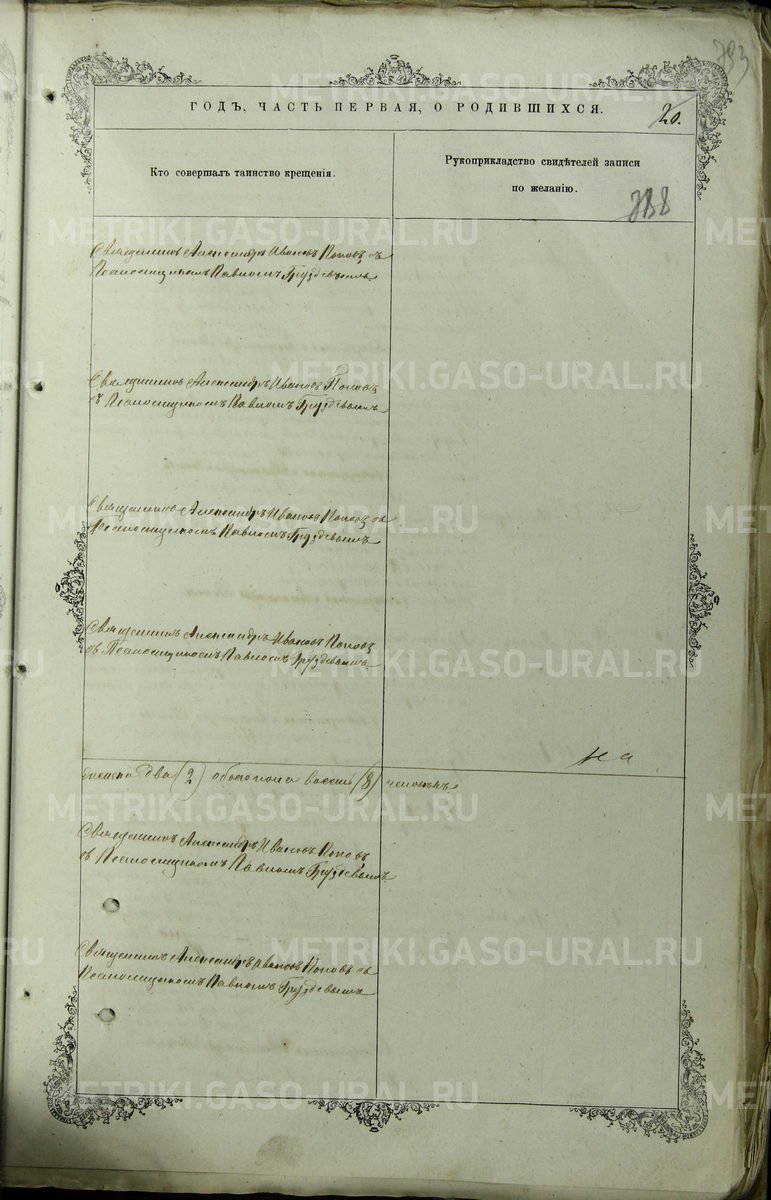 383
ГОДЪ, ЧАСТЬ ПЕРВАЯ, О РОДИВШИХСЯ.
20.
Кто совершалъ таинство крещенія.
Рукоприкладство свидѣтелей записи
по желанію.
388
Священникъ Александръ Ивановъ Поповъ съ
Псаломщикомъ Павломъ Груздевымъ
Священникъ Александръ Ивановъ Поповъ
съ Псаломщикомъ Павломъ Груздевымъ
Священникъ Александръ Ивановъ Поповъ съ
Псаломщикомъ Павломъ Груздевымъ
Священникъ Александръ Ивановъ Поповъ
съ Псаломщикомъ Павломъ Груздевымъ
на
женска два (2) обоего пола восемь (8) человѣкъ
Священникъ Александръ Ивановъ Поповъ
съ Псаломщикомъ Павломъ Груздевымъ
Священникъ Александръ Ивановъ Поповъ съ
Псаломщикомъ Павломъ Груздевымъ
METRIKI.GASO-URAL.RU